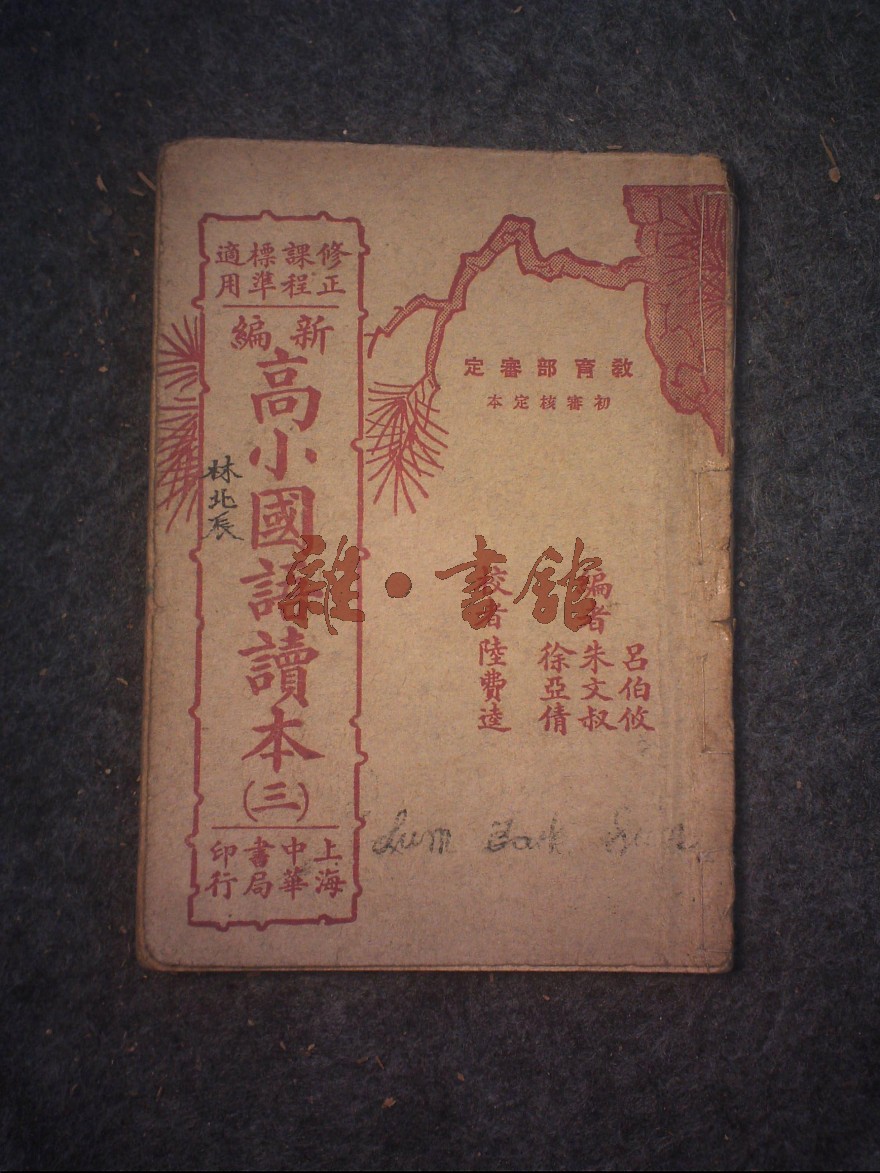 修正課程標準適用
新編
高小國語讀本
(三)
上海中華書局印行
林北辰
教育部審定
初審核定本
編者
呂伯攸
朱文叔
徐亞倩
校者
陸費逵
雜·書館
Lum Bark